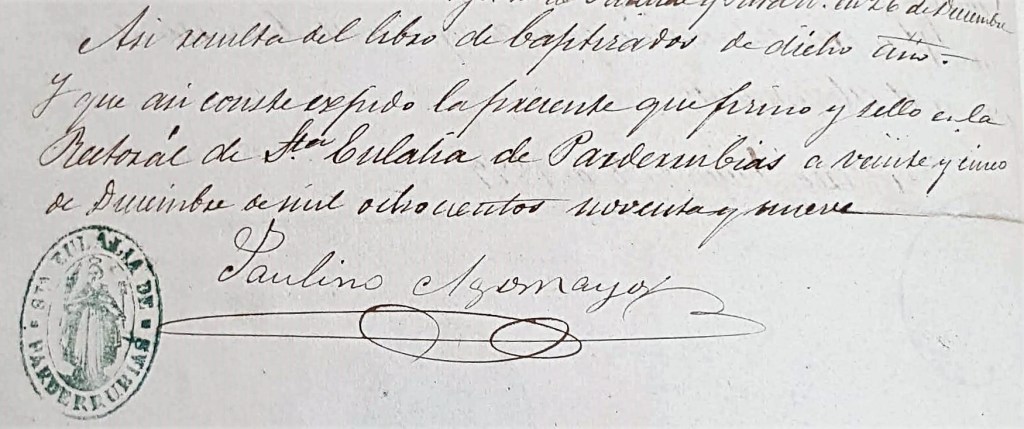 en 26 de Diciembre
Asi resulta del libro de baptizados de dicho año.
Y que asi conste expido la presente que firmo y sello en la
Rectorál de Sta Eulalia de Parderrubias a veinte y cinco
de Diciembre de mil ochocientos noventa y nueve
Paulino Agromayor
STA EULALIA DE
PARDERRUBIAS